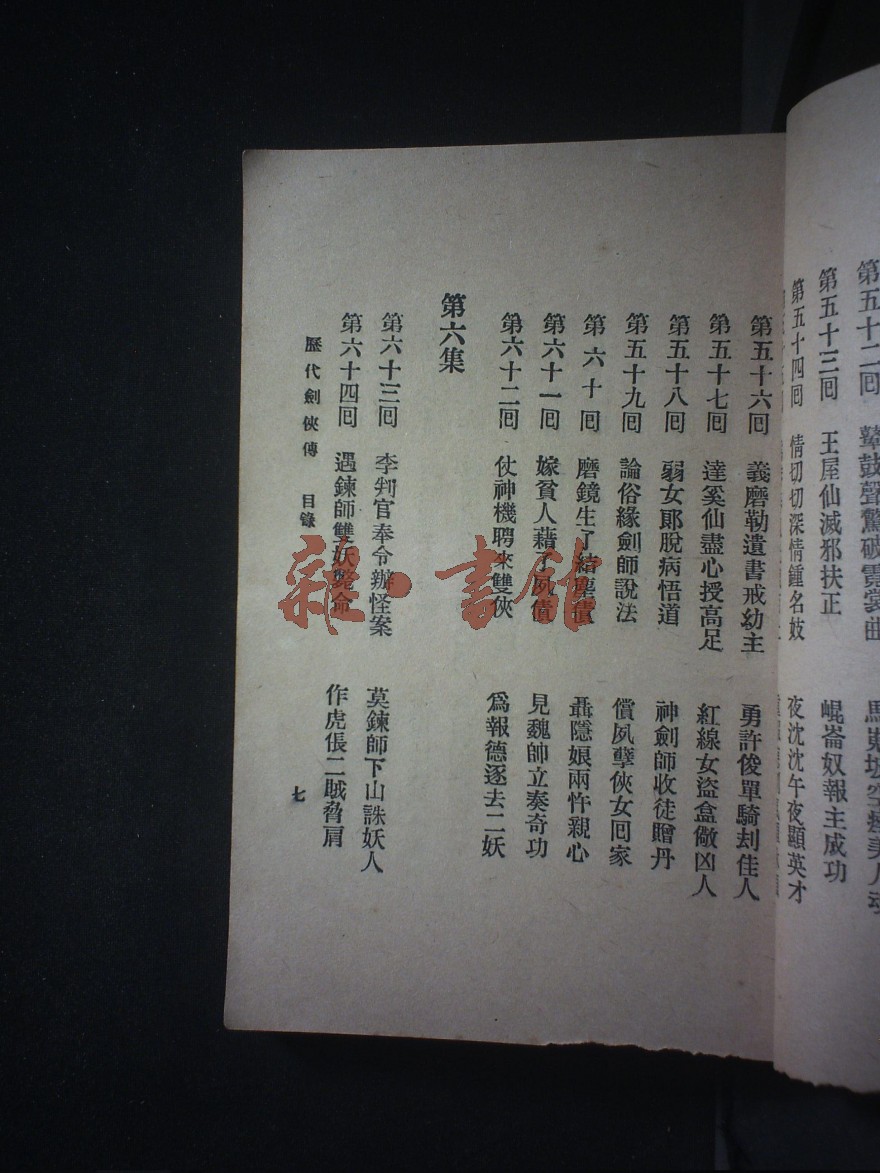 第五十二回 鼙鼓聲驚破霓裳曲
第五十三回 王屋仙滅邪扶正 崐崙奴報主成功
第五十四回 情切切深情鍾名妓 夜沈沈午夜顯英才
第五十六回 義磨勒遺書戒幼主 勇許俊單騎刦佳人
第五十七回 達奚仙盡心授高足 紅線女盜盒儆凶人
第五十八回 弱女郞脫病悟道 神劍師收徒贈丹
第五十九回 論俗緣劍師說法 償夙孽俠女回家
第六十回 磨鏡生了結塵債 聶隱娘兩忤親心
第六十一回 嫁貧人藉了夙債 見魏帥立奏奇功
第六十二回 仗神機聘來雙俠 爲報德逐去二妖
第六集
第六十三回 李判官奉令辦怪案 莫鍊師下山誅妖人
第六十四回 遇鍊師雙妖斃命 作虎倀二賊脅肩
歷代劍俠傳 目錄 七
雜·書館